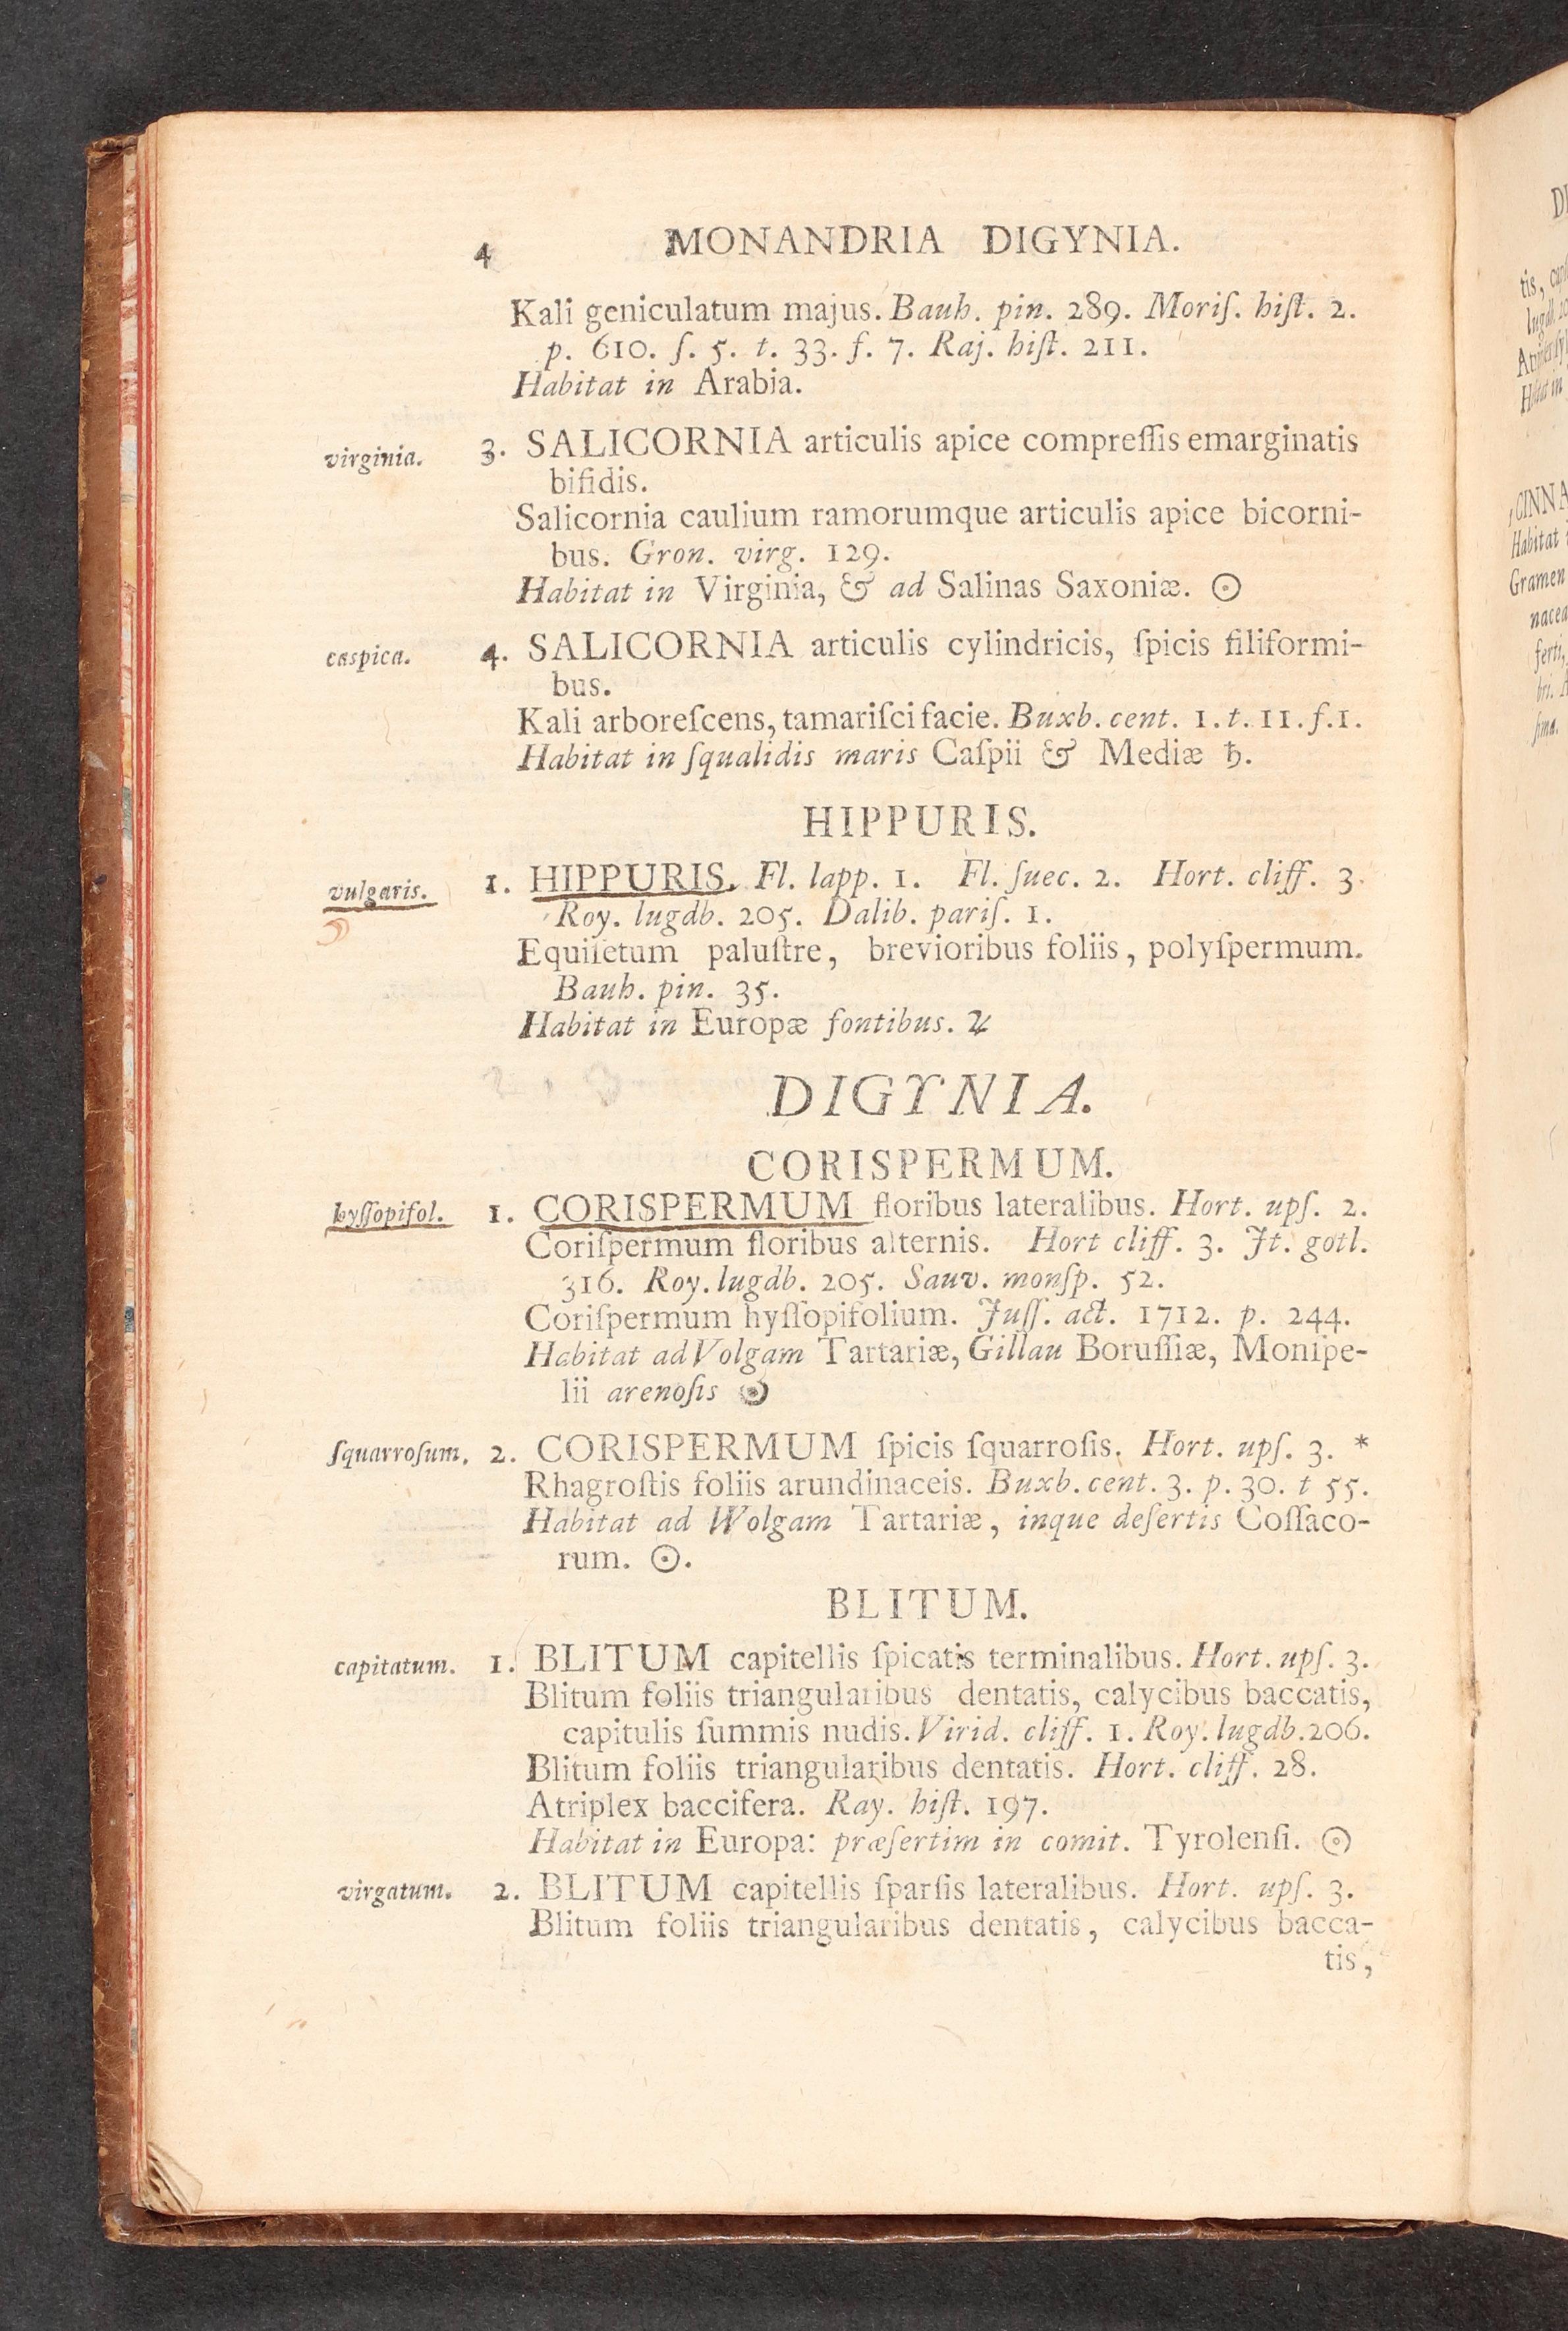 4 MONANDRIA DIGYNIA.
Kali geniculatum majus. Bauh. pin. 289. Moriſ. hiſt. 2.
p. 610. ſ. 5. t. 33. f. 7. Raj. hiſt. 211.
Habitat in Arabia.
virginia. 3. SALICORNIA articulis apice compreſſis emarginatis
bifidis.
Salicornia caulium ramorumque articulis apice bicorni-
bus. Gron. virg. 129.
Habitat in Virginia, & ad Salinas Saxoniæ. ☉
caspica. 4. SALICORNIA articulis cylindricis, ſpicis filiformi-
bus.
Kali arboreſcens, tamariſci facie. Buxb. cent. 1. t. 11. f. 1.
Habitat in ſqualidis maris Caſpii & Mediæ ♄.
HIPPURIS.
vulgaris. 1. HIPPURIS. Fl. lapp. 1. Fl. ſuec. 2. Hort. cliff. 3.
Roy. lugdb. 205. Dalib. pariſ. 1.
Equiſetum paluſtre, brevioribus foliis, polyſpermum.
Bauh. pin. 35.
Habitat in Europæ fontibus. ♃
DIGYNIA.
CORISPERMUM.
hyſſopifol. 1. CORISPERMUM floribus lateralibus. Hort. upſ. 2.
Coriſpermum floribus alternis. Hort cliff. 3. It. gotl.
316. Roy. lugdb. 205. Sauv. monſp. 52.
Coriſpermum hyſſopifolium. Juſſ. act. 1712. p. 244.
Habitat ad Volgam Tartariæ, Gillau Boruſſiæ, Monſpe-
lii arenoſis ☉
ſquarroſum. 2. CORISPERMUM ſpicis ſquarroſis. Hort. upſ. 3. *
Rhagroſtis foliis arundinaceis. Buxb. cent. 3. p. 30. t 55.
Habitat ad Wolgam Tartariæ, inque deſertis Coſſaco-
rum. ☉.
BLITUM.
capitatum. 1. BLITUM capitellis ſpicatis terminalibus. Hort. upſ. 3.
Blitum foliis triangularibus dentatis, calycibus baccatis,
capitulis ſummis nudis. Virid. cliff. 1. Roy. lugdb. 206.
Blitum foliis triangularibus dentatis. Hort. cliff. 28.
Atriplex baccifera. Ray. hiſt. 197.
Habitat in Europa: præſertim in comit. Tyrolenſi. ☉
virgatum. 2. BLITUM capitellis ſparſis lateralibus. Hort. upſ. 3.
Blitum foliis triangularibus dentatis, calycibus bacca-
tis,